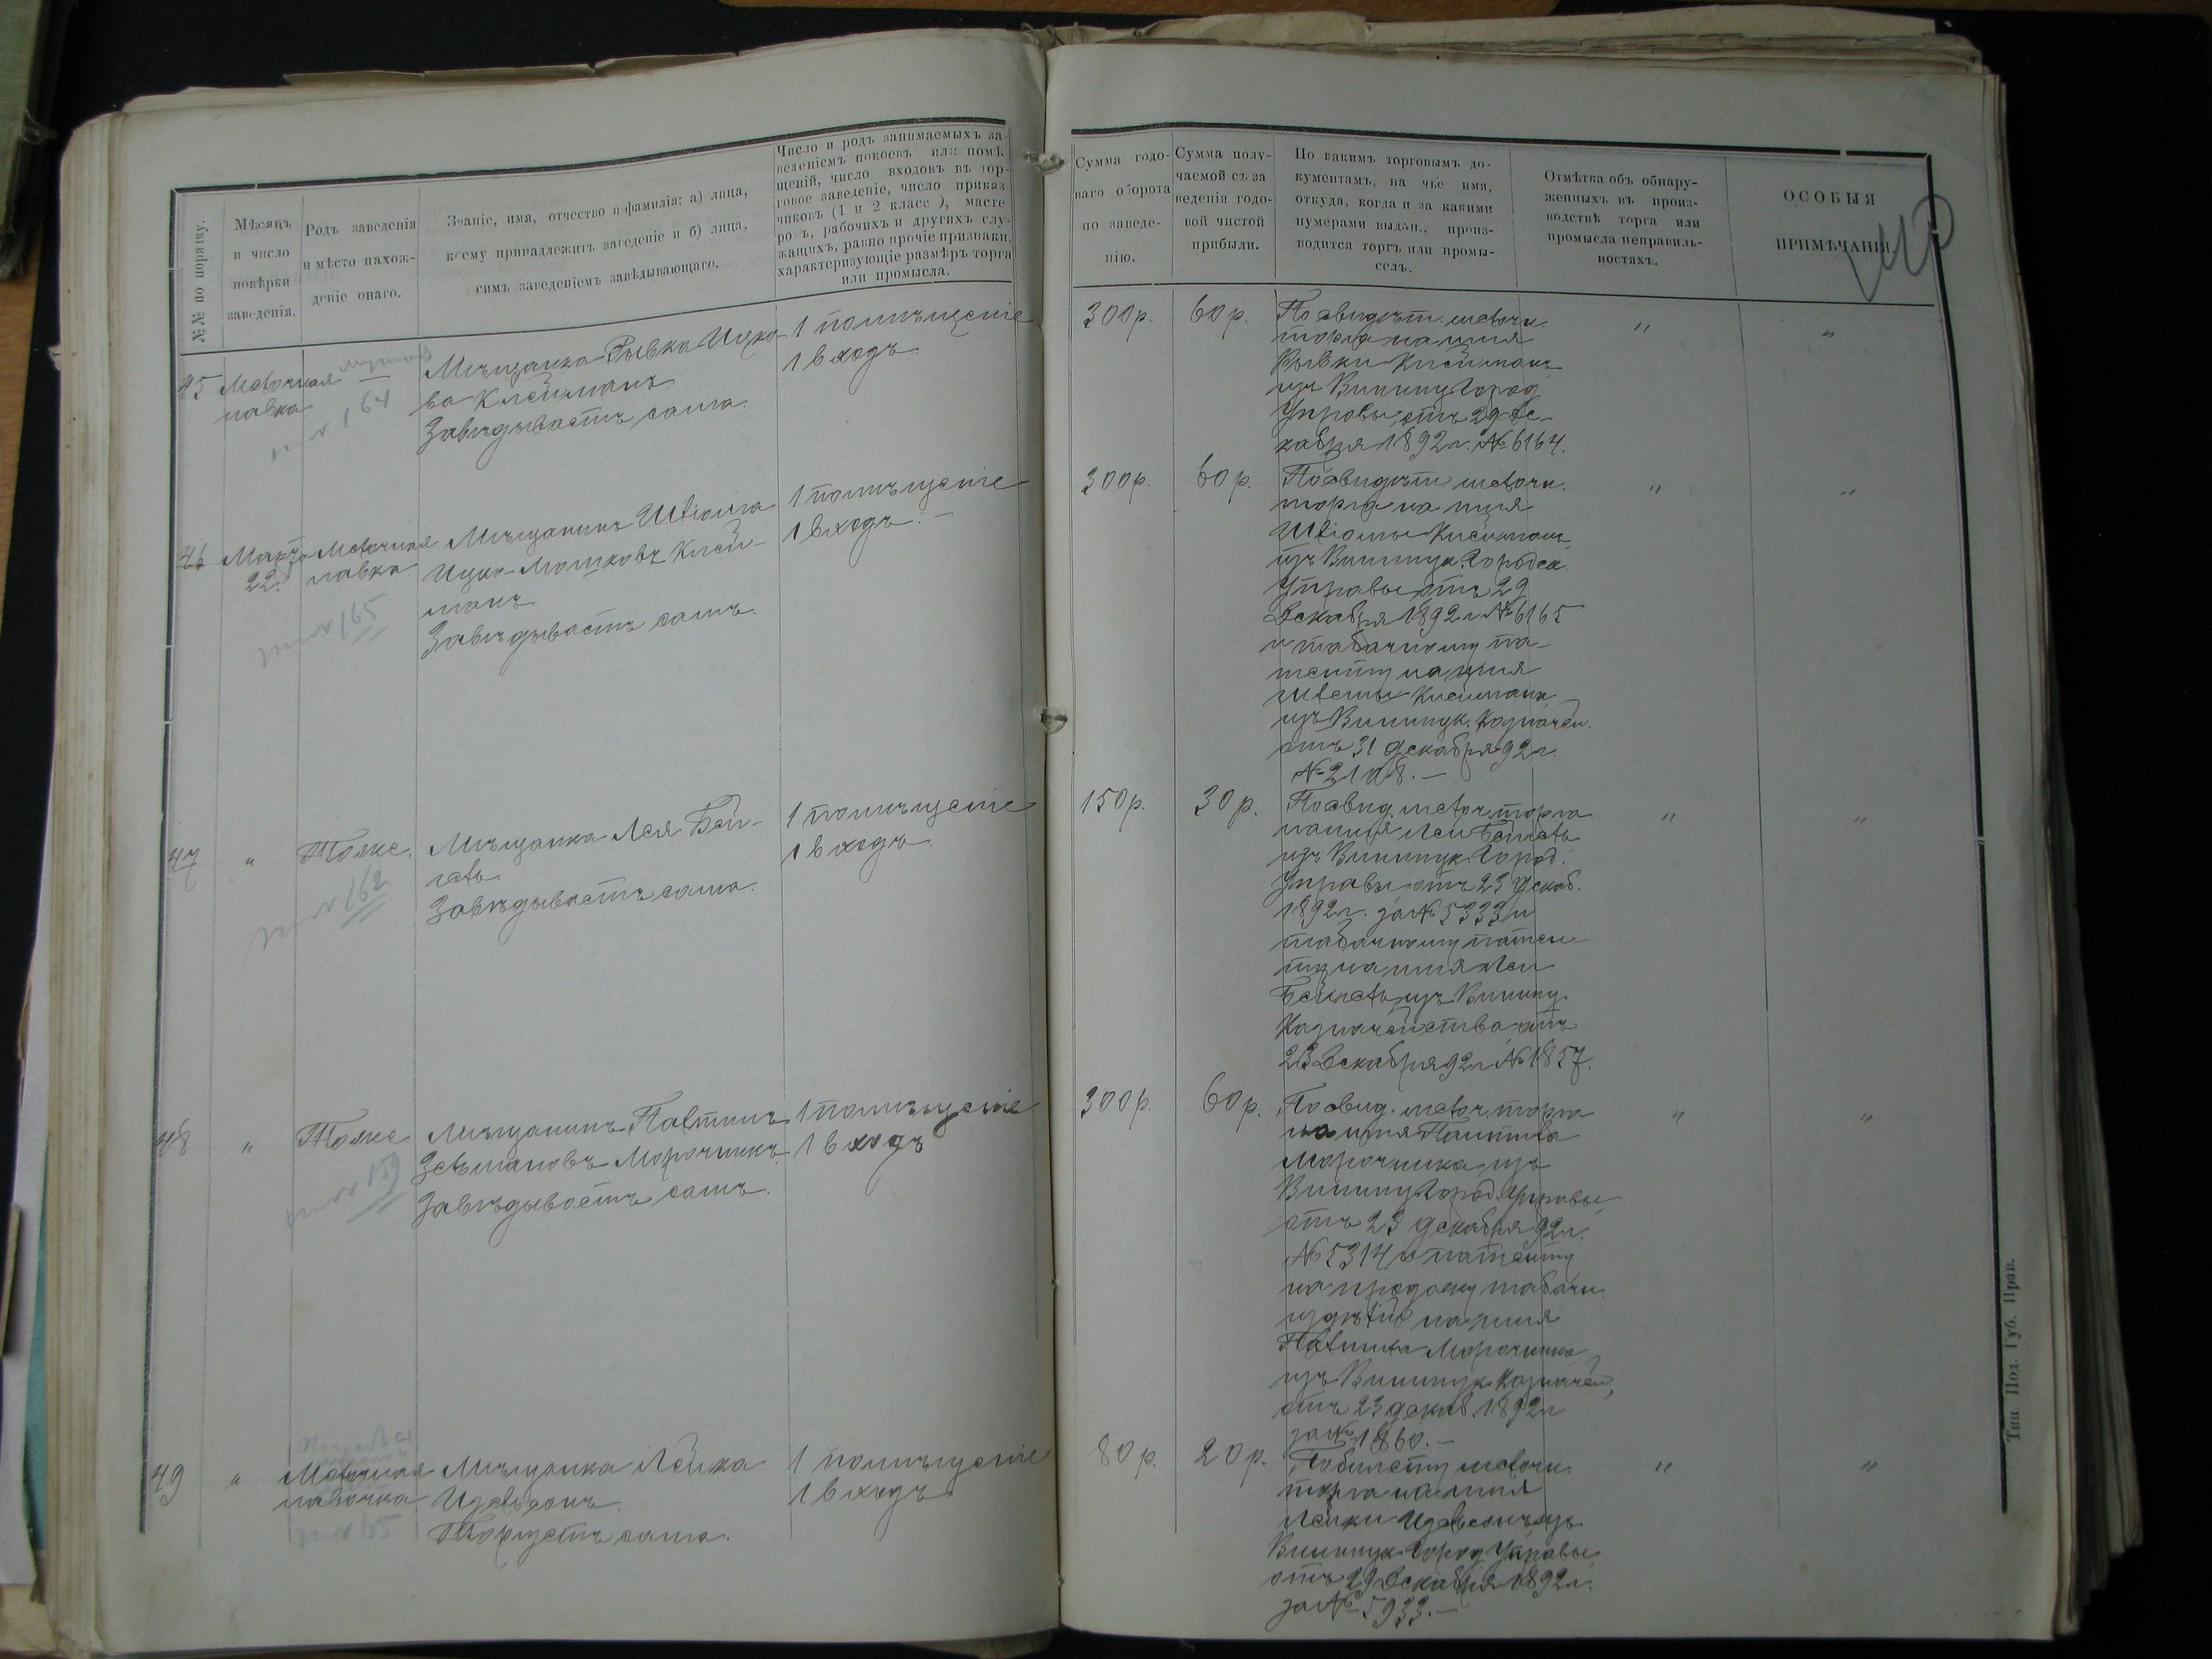 №№ по порядку.
Мѣсяцъ
и число
повѣрки
заведенія.
Родъ заведенія
и мѣсто нахож-
деніе онаго.
Званіе, имя, отчество и фамилія: а) лица,
коему принадлежитъ заведеніе и б) лица,
симъ заведеніемъ завѣдывающаго.
Число и родъ занимаемыхъ за-
веденіемъ покоевъ или помѣ
щеній, число входовъ въ тор-
говое заведеніе, число приказ
чиковъ (1 и 2 класс ), масте
ро ъ, рабочихъ и другихъ слу-
жащихъ, равно прочіе признаки,
характеризующіе размѣръ торга
или промысла.
Сумма годо-
ваго оборота
по заведе-
нію.
Сумма полу-
чаемой съ за
веденія годо-
вой чистой
прибыли.
По какимъ торговымъ до-
кументамъ, на чье имя,
откуда, когда и за какими
нумерами выдан., произ-
водится торгъ или промы-
селъ.
Отмѣтка объ обнару-
женныхъ въ произ-
водствѣ торга или
промысла неправиль-
ностяхъ.
ОСОБЫЯ
ПРИМѢЧАНІЯ.
45 Мелочная
лавка
164
Мѣщанка Рывка Ицко-
ва Клейманъ.
Завѣдываетъ сама.
1 помѣщеніе
1 входъ.
300 р.
60 р.
По свидѣт. мелочн.
торга на имя
Рывки Клейманъ
изъ Винниц. Город.
Управы отъ 29 де-
кабря 1892 г. № 6164.
"
"
46 Марта
22.
Мелочная
лавка
165
Мѣщанинъ Шліома
Ицко-Мошковъ Клей-
манъ
Завѣдываетъ самъ.
1 помѣщеніе
1 входъ. –
300 р.
60 р.
По свидѣт. мелочн.
торга на имя
Шліомы Клейманъ
изъ Винницк. Городск.
Управы отъ 29
Декабря 1892 г. № 6165
и табачному па-
тенту на имя
Шлемы Клейманъ
изъ Винницк. Казначей.
отъ 31 декабря 92 г.
№ 2108. –
"
"
47 " Тоже.
162
Мѣщанка Лея Бей-
лель
Завѣдываетъ сама.
1 помѣщеніе
1 входъ.
150 р.
30 р.
По свид. мелоч. торга
на имя Леи Бейлель
изъ Винницк. Город.
Управы отъ 23 декаб.
1892 г. за № 5333 и
табачному патен-
ту на имя Леи
Бейлель изъ Винниц.
Казначейства отъ
23 Декабря 92 г. № 1857.
"
"
48 " Тоже
159
Мѣщанинъ
Зельмановъ Морочникъ
Завѣдываетъ самъ.
1 помѣщеніе
1 входъ
300 р.
60 р.
По свид. мелоч. торга
на имя
Морочника изъ
Винниц. Город. Управы
отъ 23 декабря 92 г.
№ 5314 и патенту
на продажу табачн.
издѣлій на имя
Морочника
изъ Винницк. Казначей,
отъ 23 декаб. 1892 г.
за № 1860. –
"
"
49 " Мелочная
лавочка
Мѣщанка Лейка
Идельсонъ.
Торгуетъ сама.
1 помѣщеніе
1 входъ
80 р.
20 р.
По билету мелочн.
торга на имя
Лейки Идельсонъ изъ
Винницк. Город. Управы
отъ 29 Декабря 1892 г.
за № 5933. –
"
"
Тип. Под. Губ. Прав.